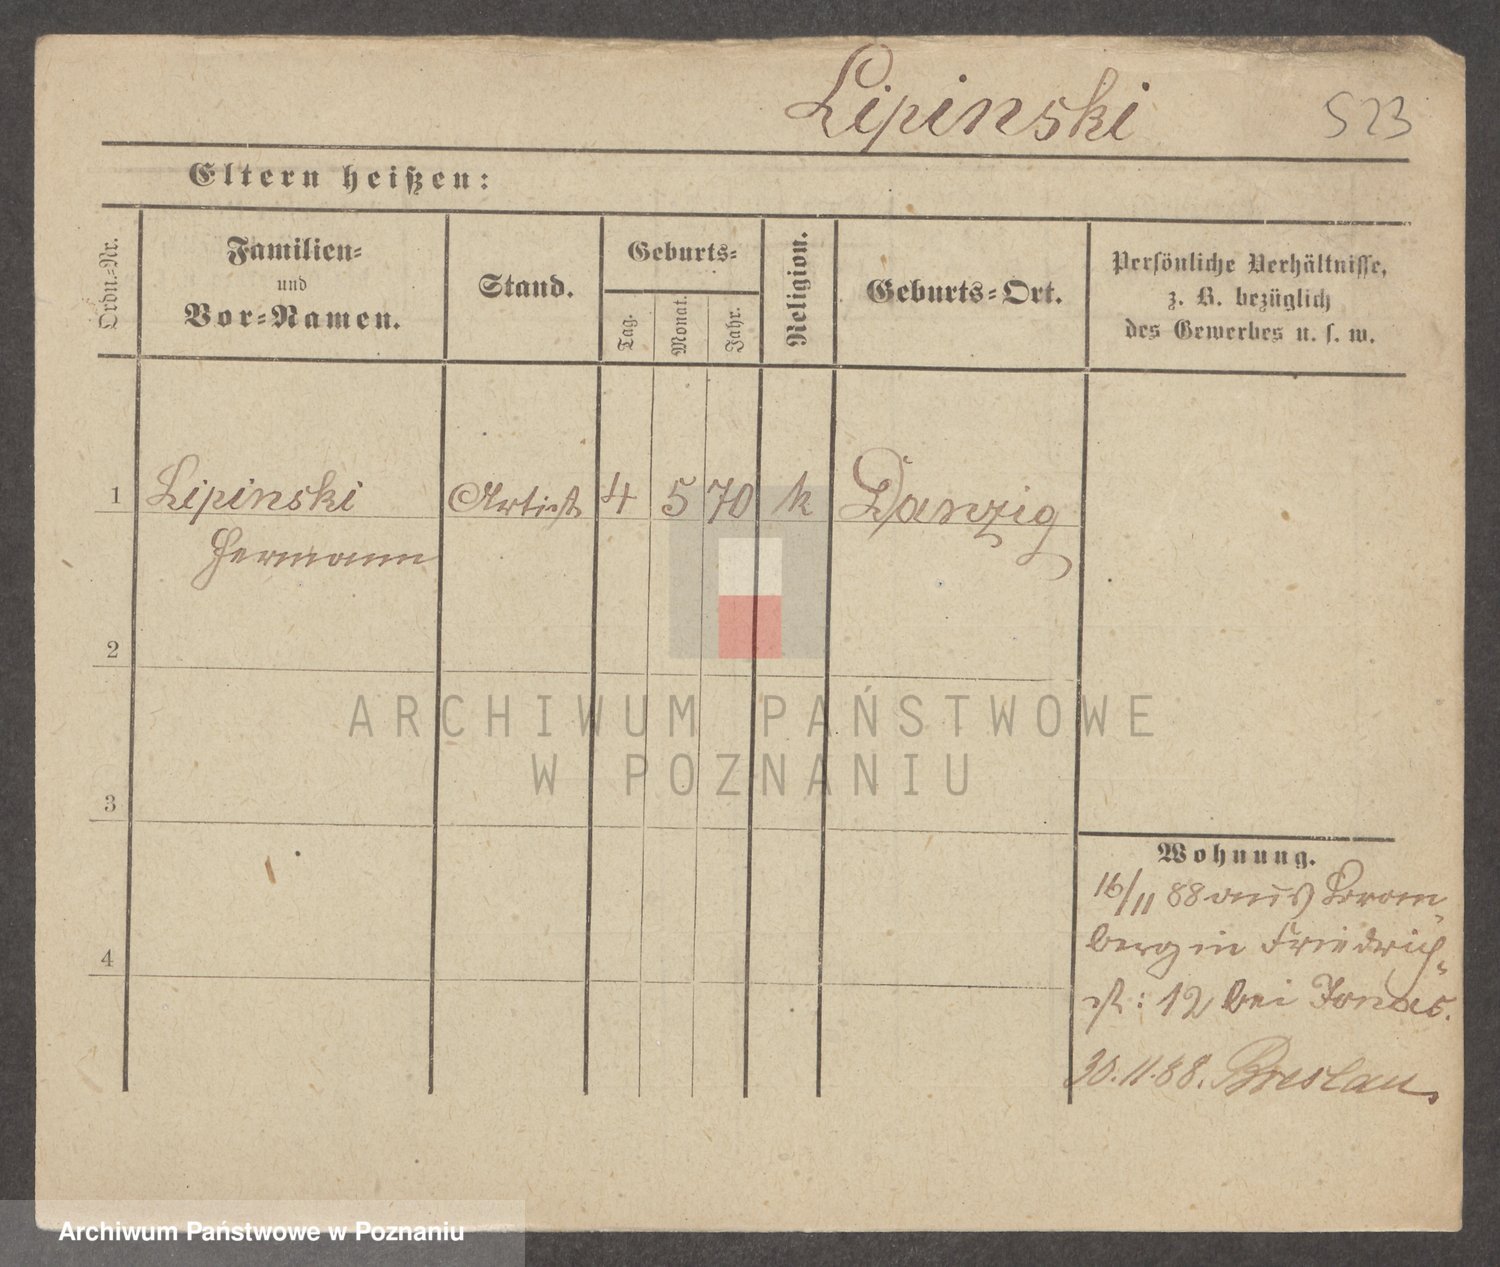 Lipinski 523
Eltern heißen:
Ordn.=Nr.
Familien=
und
Vor=Namen.
Stand.
Geburts=
Tag.
Monat.
Jahr.
Religion.
Geburts=Ort.
Persönliche Verhältnisse,
z. B. bezüglich
des Gewerbes u. s. w.
1 Lipinski Artist 4 5 70 k Danzig
Hermann
2
3
4
ARCHIWUM PAŃSTWOWE
W POZNANIU
Wohnung.
16/11 88 aus Brom
berg in Friedrich=
st: 12 bei Jonas.
30.11.88. Breslau.
Archiwum Państwowe w Poznaniu